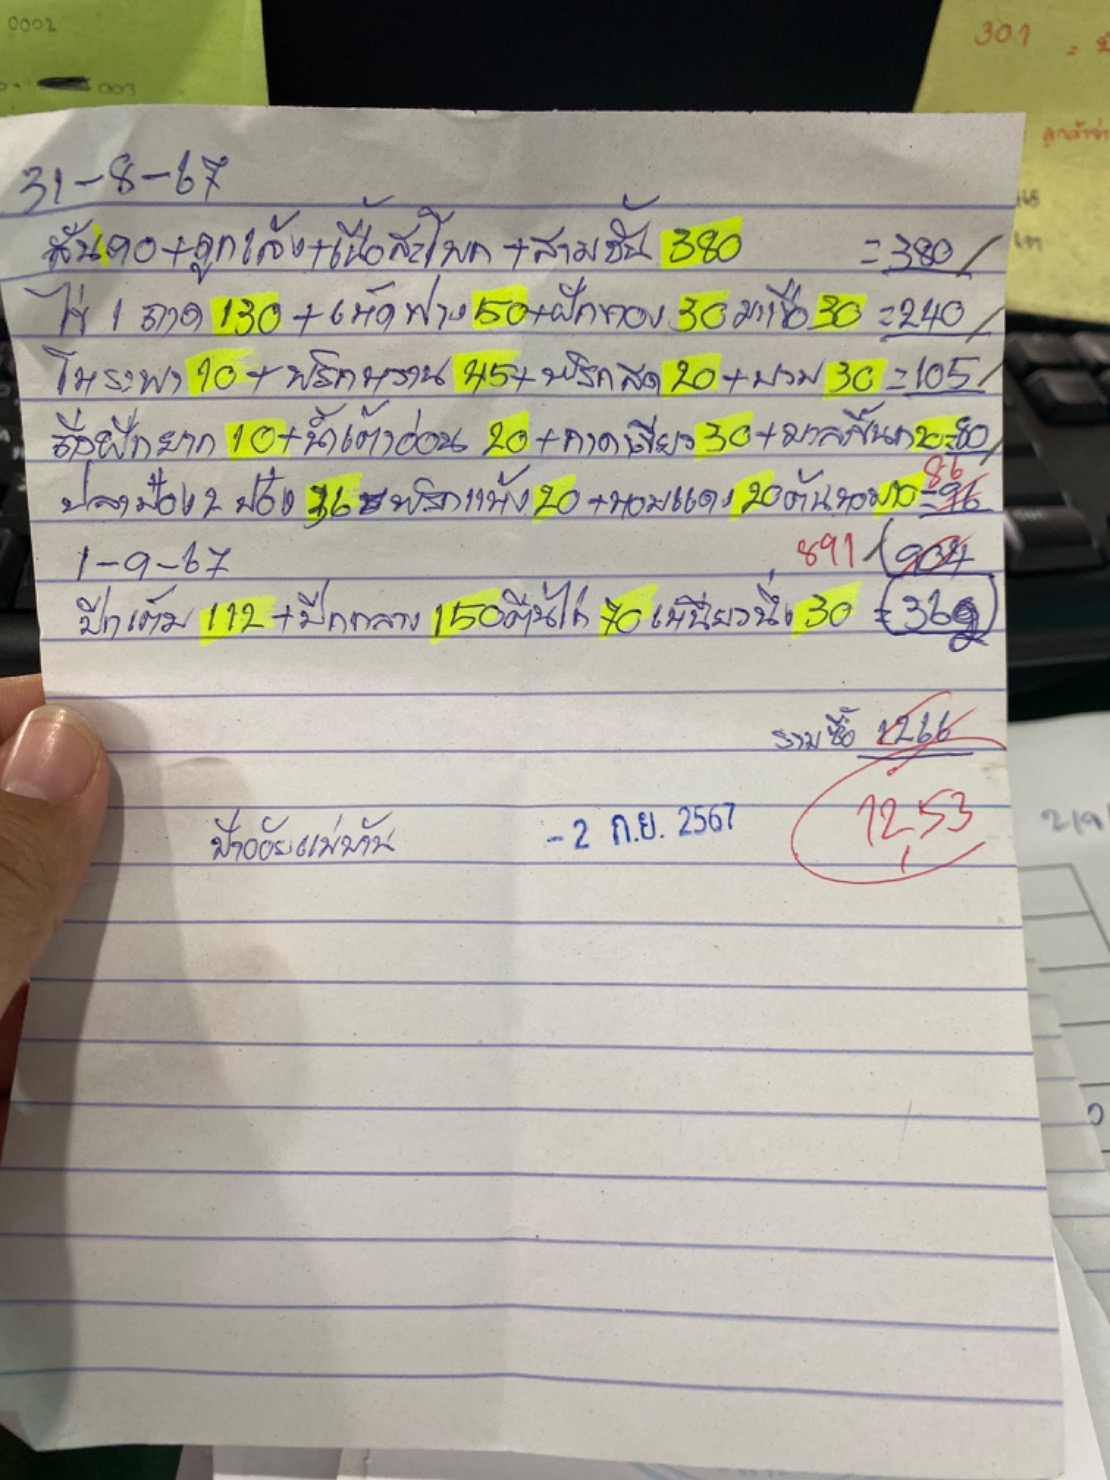 0002
003
301 = 
ลูกค้า
31-8-67
สันคอ+ลูกเล้ง+เนื้อสะโพก+สามชั้น 380 =380/
ไข่ 1 ถาด 130+เห็ดฟาง 50+ฝักทอง 30 มะเขือ 30 =240/
โหระพา 10+พริกหวาน 45+พริกสด 20+บวบ 30=105/
ถั่วฝักยาก 10+น้ำเต้าอ่อน 20+กาดเขียว 30+ 20=80/
ปลากระป๋อง 2 ป๋อง 36 พริกแห้ง 20+หอมแดง 20 ต้นหอม 10=96
86
1-9-67 891/ 904
ปีกเต็ม 112+ปีกกลาง 150 ตีนไก่ 70 เหนียวนึ่ง 30 =362
รวมซื้อ 1266
1253
ป้าอ้อยแม่บ้าน -2 ก.ย. 2567